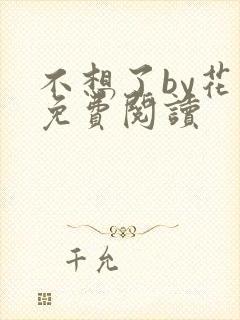 不想了by花
免費閱讀
千允